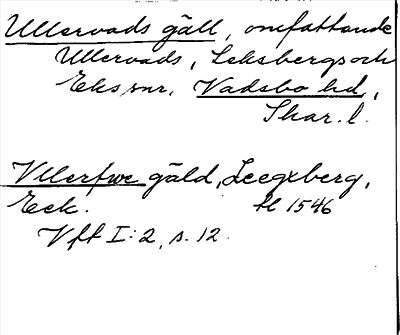 Ullervads gäll, omfattande
Ullervads, Leksbergs och
Eks snr, Vadsbo hd,
Skar. l.
Vllerfwe gäld, Leegxberg,
Eek. tl 1546
Vft I:2, s. 12.